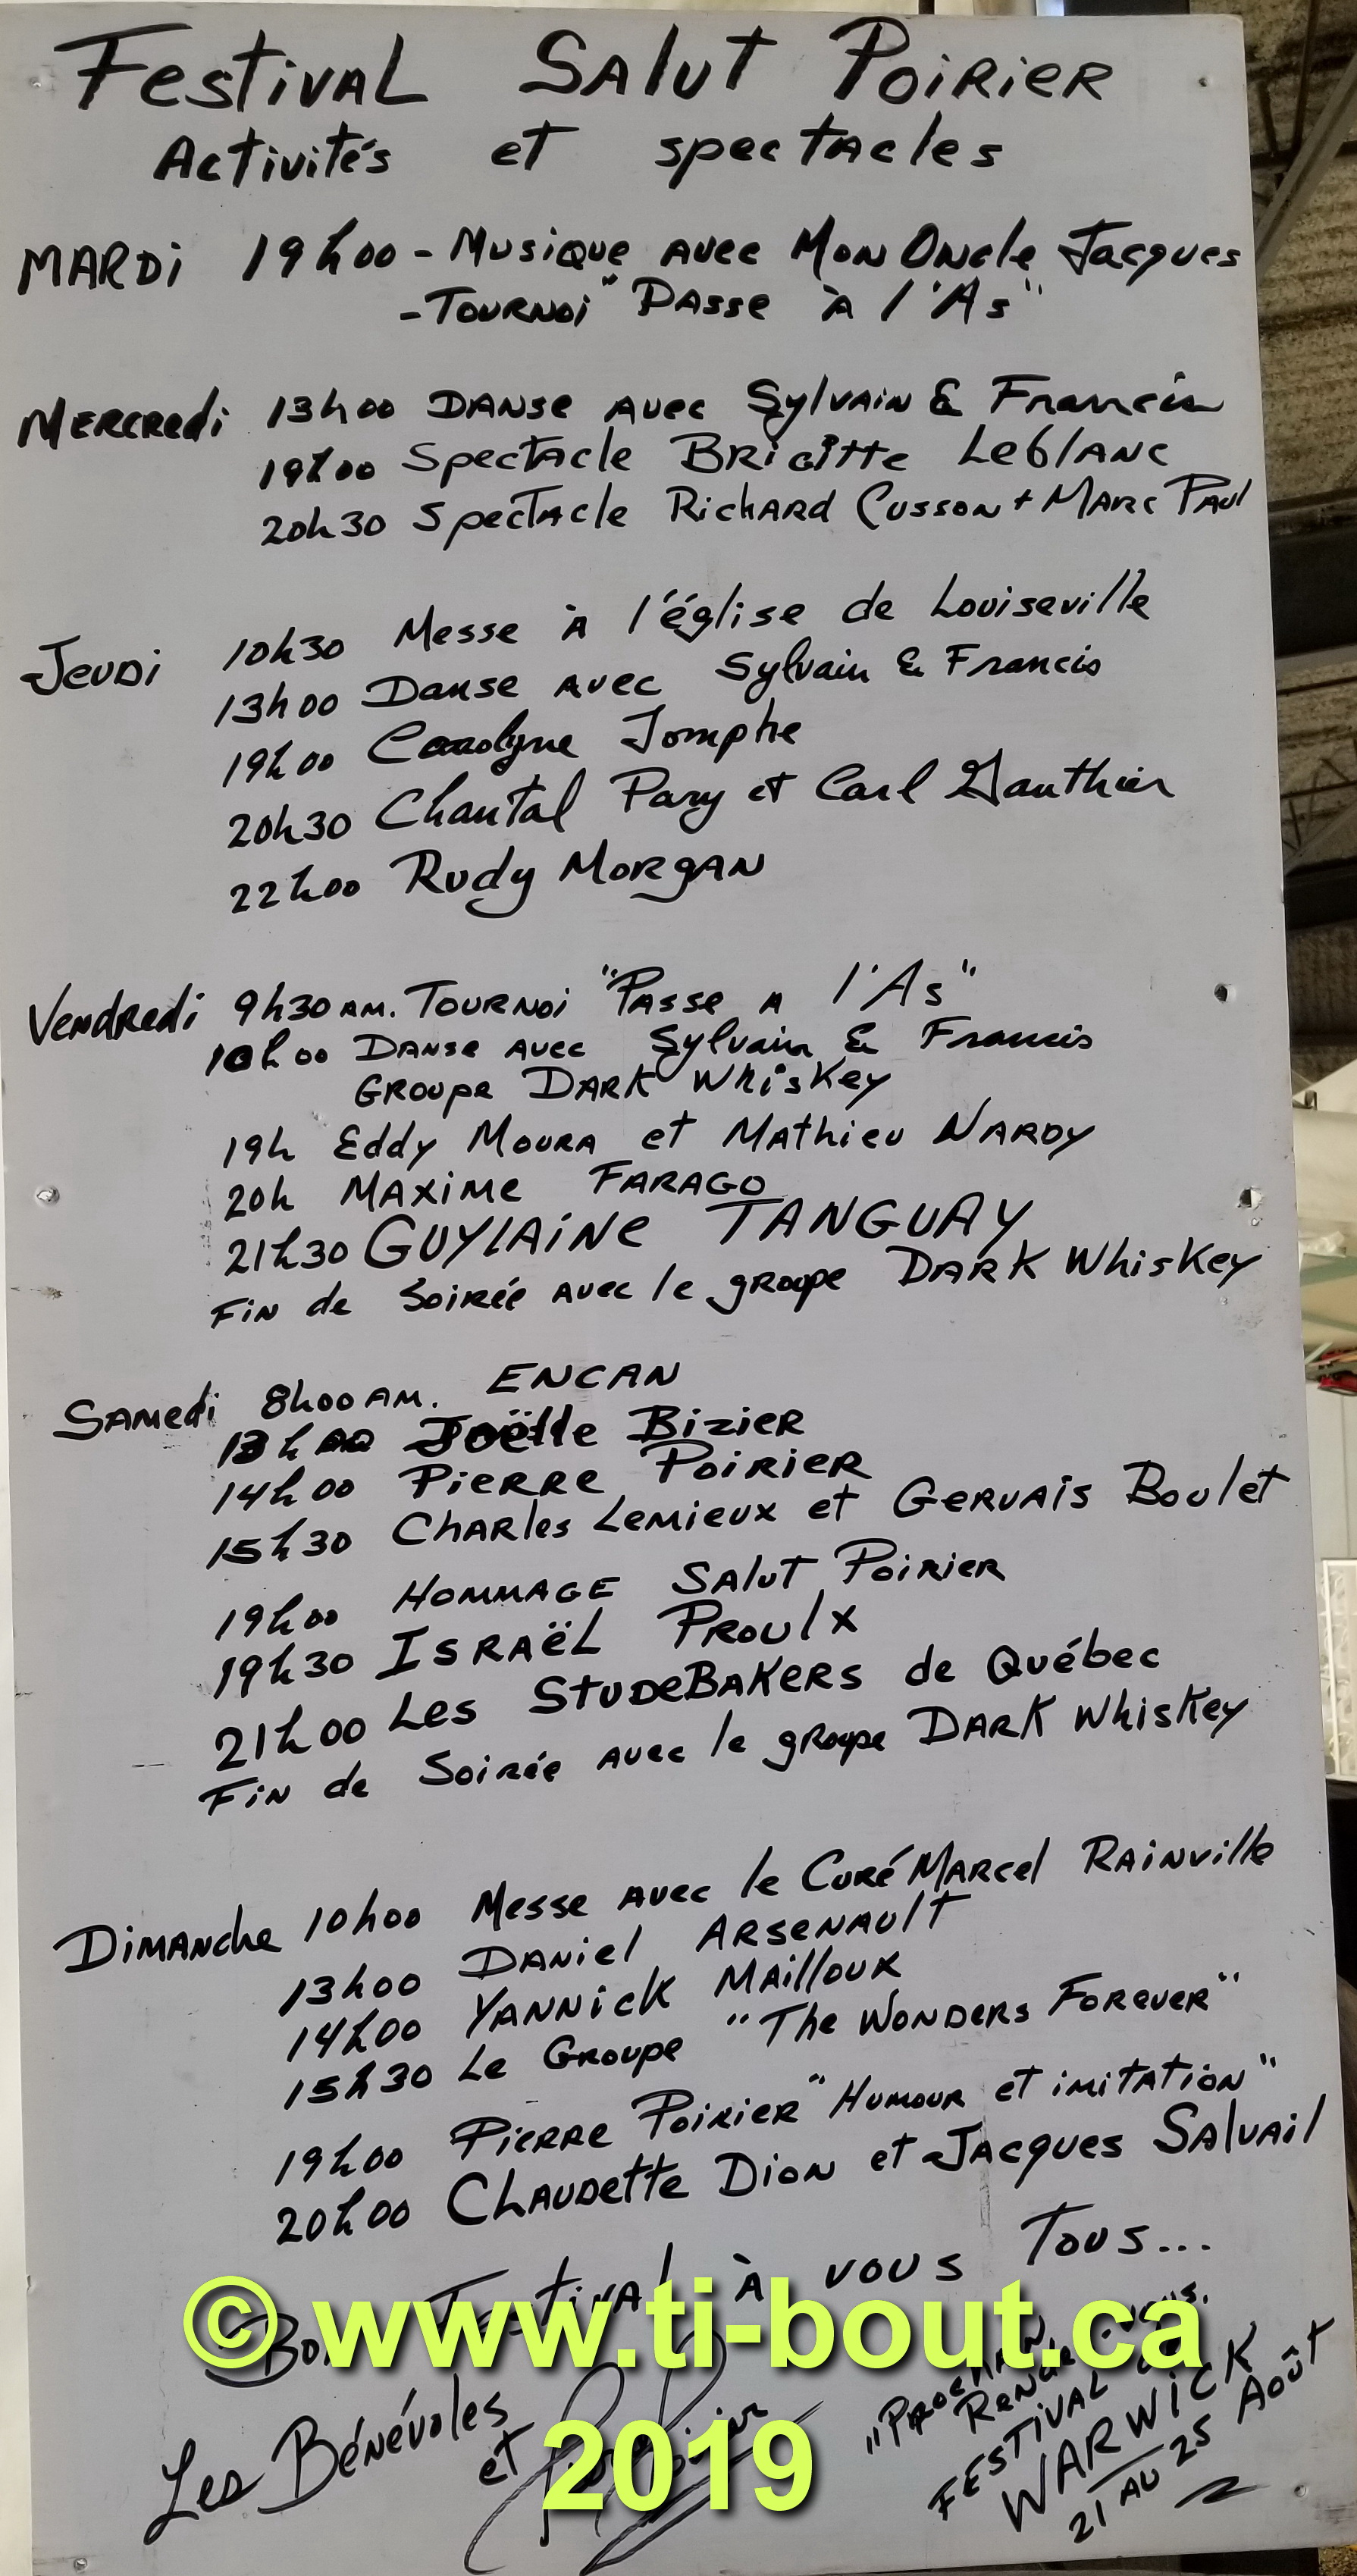 Festival Salut Poirier
Activités et spectacles
MARDI 19h00 - Musique avec Mon Oncle Jacques
- Tournoi "Passe à l'As"
Mercredi 13h00 Danse avec Sylvain & Francis
19h00 Spectacle Brigitte Leblanc
20h30 Spectacle Richard Cusson + Marc Paul
Jeudi 10h30 Messe à l'église de Louiseville
13h00 Danse avec Sylvain & Francis
19h00 Carolyne Jomphe
20h30 Chantal Pary et Carl Gauthier
22h00 Rudy Morgan
Vendredi 9h30 AM. Tournoi "Passe a l'As"
h00 Danse avec Sylvain & Francis
Groupe Dark Whiskey
19h Eddy Moura et Mathieu Nardy
20h Maxime Farago
21h30 Guylaine Tanguay
Fin de Soirée avec le groupe Dark Whiskey
Samedi 8h00 AM. ENCAN
13h Joëlle Bizier
14h00 Pierre Poirier
15h30 Charles Lemieux et Gervais Boulet
19h00 Hommage Salut Poirier
19h30 Israël Proulx
21h00 Les Studebakers de Québec
Fin de Soirée avec le groupe Dark Whiskey
Dimanche 10h00 Messe avec le Curé Marcel Rainville
13h00 Daniel Arsenault
14h00 Yannick Mailloux
15h30 Le Groupe "The Wonders Forever"
19h00 Pierre Poirier "Humour et imitation"
20h00 Chaudette Dion et Jacques Salvail
Bon Festival à vous Tous...
© www.ti-bout.ca
2019
Les Bénévoles
et Poirier
"Prochain
Rendez-vous.
Festival de
WARWICK
21 au 25 Août